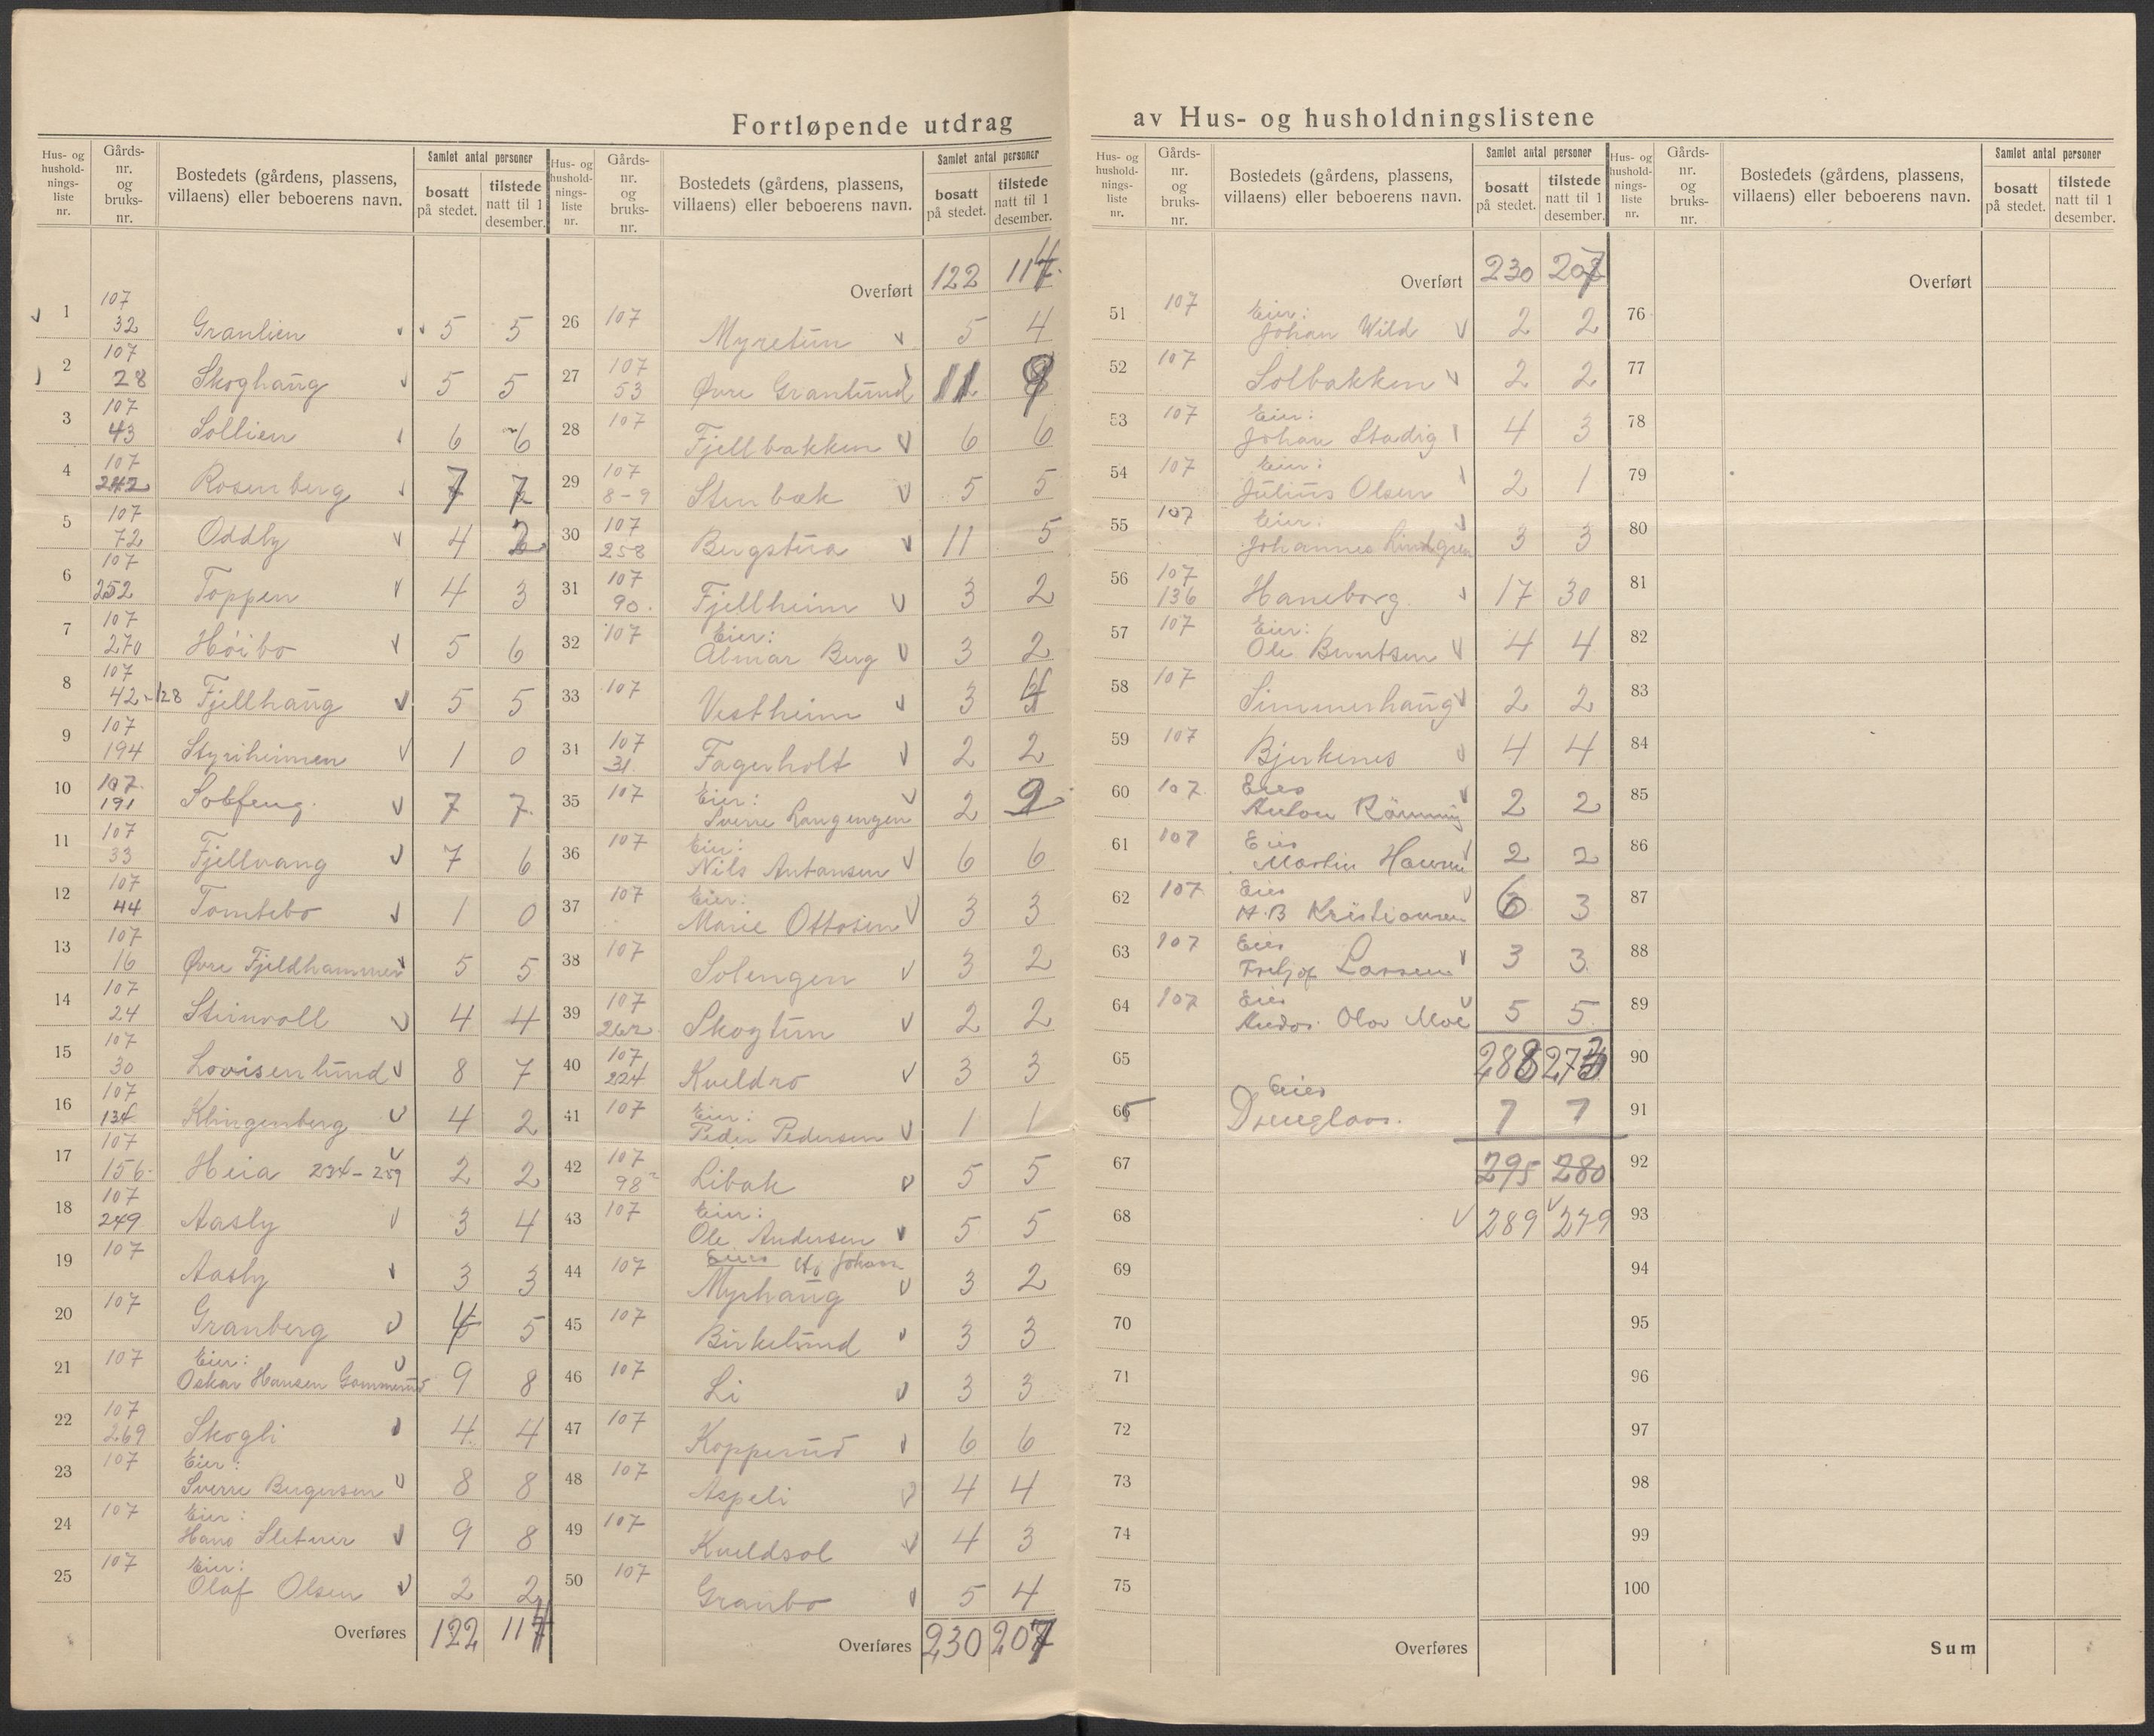 Fortløpende utdrag av Hus- og husholdningslistene
Hus- og hushold-nings-liste nr.
Gårds-nr. og bruks-nr.
Bostedets (gårdens, plassens, villaens) eller beboerens navn.
Samlet antal personer
bosatt på stedet.
tilstede natt til 1 desember.
1 107 32 Granlien 5 5
2 107 28 Skoghaug 5 5
3 107 43 Sollien 6 6
4 107 242 Rosenberg 7 7
5 107 72 Oddby 4 2
6 107 252 Toppen 4 3
7 107 270 Høibo 5 6
8 107 42-128 Fjellhaug 5 5
9 107 194 Styriheimen 1 0
10 107 191 7 7
11 107 33 Fjellvang 7 6
12 107 44 Tomtebo 1 0
13 107 16 Øvre Fjeldhammer 5 5
14 107 24 Steinvoll 4 4
15 107 30 Lovisenlund 8 7
16 107 134 Klingenberg 4 2
17 107 156 Heia 234-259 2 2
18 107 249 Aasly 3 4
19 107 Aasly 3 3
20 107 Granberg 4 5
21 107 Eier:
Oskar Hansen Gommerud 9 8
22 107 269 Skogli 4 4
23 107 Eier:
Sverre Bergersen 8 8
24 107 Eier:
Hans Sletner 9 8
25 107 Eier:
Olaf Olsen 2 2
Overføres 122 114
Hus- og hushold-nings-liste nr.
Gårds-nr. og bruks-nr.
Bostedets (gårdens, plassens, villaens) eller beboerens navn.
Samlet antal personer
bosatt på stedet.
tilstede natt til 1 desember.
Overført 122 114
26 107 Myretun 5 4
27 107 53 Øvre Granlund 11 9
28 107 Fjellbakken 6 6
29 107 8-9 Stenbæk 5 5
30 107 258 Bergstua 11 5
31 107 90 Fjellheim 3 2
32 107 Eier:
Almar Berg 3 2
33 107 Vestheim 3 4
34 107 31 Fagerholt 2 2
35 107 Eier:
Sverre Langengen 2 2
36 107 Eier:
Nils Antonsen 6 6
37 107 Eier:
Marie Ottosen 3 3
38 107 Solengen 3 2
39 107 262 Skogtun 2 2
40 107 224 Kveldro 3 3
41 107 Eier:
Peder Pedersen 1 1
42 107 98 Libak 5 5
43 107 Eier:
Ole Andersen 5 5
44 107 Eier Johan
Myrhaug 3 2
45 107 Birkelund 3 3
46 107 Li 3 3
47 107 Kopperud 6 6
48 107 Aspeli 4 4
49 107 Kveldsol 4 3
50 107 Granbo 5 4
Overføres 230 207
Hus- og hushold-nings-liste nr.
Gårds-nr. og bruks-nr.
Bostedets (gårdens, plassens, villaens) eller beboerens navn.
Samlet antal personer
bosatt på stedet.
tilstede natt til 1 desember.
Overført 230 207
51 107 Eier:
Johan Wild 2 2
52 107 Solbakken 2 2
53 107 Eier:
Johan Stadig 4 3
54 107 Eier:
Julius Olsen 2 1
55 107 Eier:
Johannes Lindgren 3 3
56 107 136 Haneborg 17 30
57 107 Eier:
Ole Berntsen 4 4
58 107 Simmerhaug 2 2
59 107 Bjerkenes 4 4
60 107 Eier
Anton Rönning 2 2
61 107 Eier
Martin Hansen 2 2
62 107 Eier
H.B Kristiansen 6 3
63 107 Eier
Fritjof Larsen 3 3
64 107 Eier
Olav Moe 5 5
65 288 273
66 Eier
7 7
67 295 280
68 289 279
69
70
71
72
73
74
75
Overføres
Hus- og hushold-nings-liste nr.
Gårds-nr. og bruks-nr.
Bostedets (gårdens, plassens, villaens) eller beboerens navn.
Samlet antal personer
bosatt på stedet.
tilstede natt til 1 desember.
Overført
76
77
78
79
80
81
82
83
84
85
86
87
88
89
90
91
92
93
94
95
96
97
98
99
100
Sum